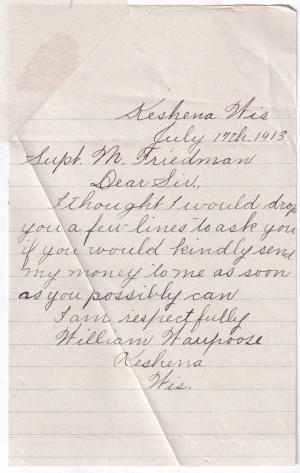 Keshena Wis
July 17th. 1913
Supt. M. Friedman
Dear Sir,
I thought I would drop
you a few lines to ask you
if you would kindly send
my money to me as soon
as you possibly can
I am respectfully
William Waupoose
Keshena
Wis.